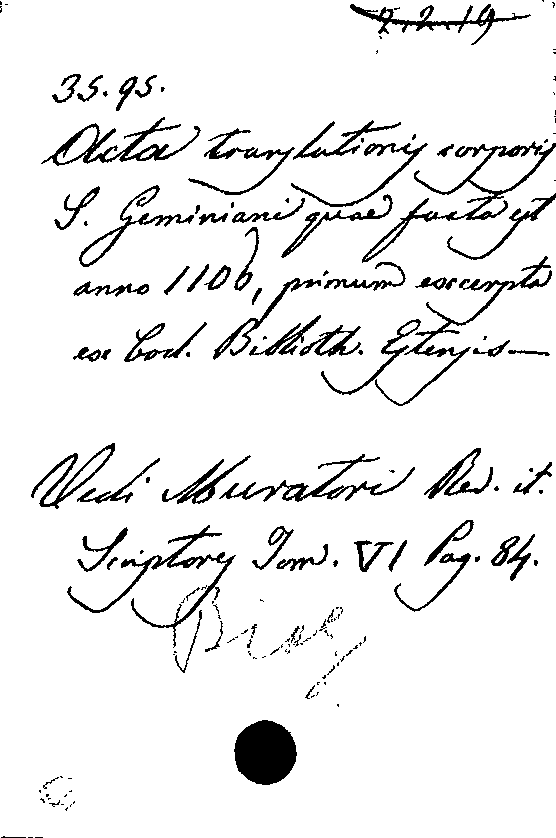 2.2.19
35.95.
Acta translationis corporis
S. Geminiani quae facta est
anno 1106, primum excerpta
ex Cod. Biblioth. Estensis—
Vedi Muratori Rer. it.
Scriptores Tom. VI Pag. 84.